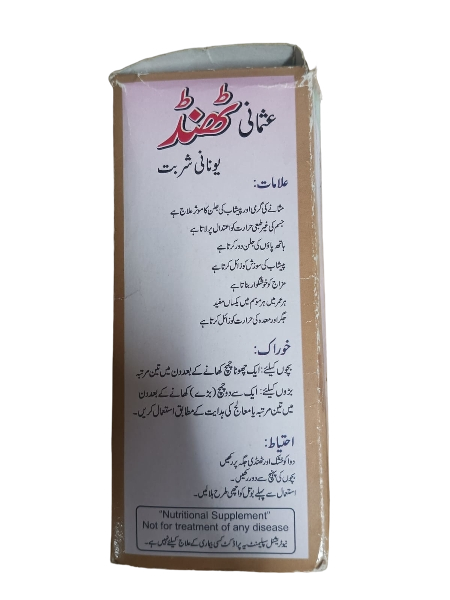 عثمانی ٹھنڈ
یونانی شربت
علامات:
مثانے کی گرمی اور پیشاب کی جلن کا موثر علاج ہے
جسم کی غیر طبعی حرارت کو اعتدال پر لاتا ہے
ہاتھ پاؤں کی جلن دور کرتا ہے
پیشاب کی سوزش کو زائل کرتا ہے
مزاج کو خوشگوار بناتا ہے
ہر عمر میں ہر موسم میں یکساں مفید
جگر اور معدہ کی حرارت کو زائل کرتا ہے
خوراک:
بچوں کیلئے: ایک چھوٹا چمچ کھانے کے بعد دن میں تین مرتبہ
بڑوں کیلئے: ایک سے دو چمچ (بڑے) کھانے کے بعد دن
میں تین مرتبہ یا معالج کی ہدایت کے مطابق استعمال کریں۔
احتیاط:
دوا کو خشک اور ٹھنڈی جگہ پر رکھیں
بچوں کی پہنچ سے دور رکھیں۔
استعمال سے پہلے بوتل کو اچھی طرح ہلائیں۔
"Nutritional Supplement"
Not for treatment of any disease
نیوٹریشنل سپلیمنٹ یہ پراڈکٹ کسی بیماری کے علاج کیلئے نہیں ہے۔